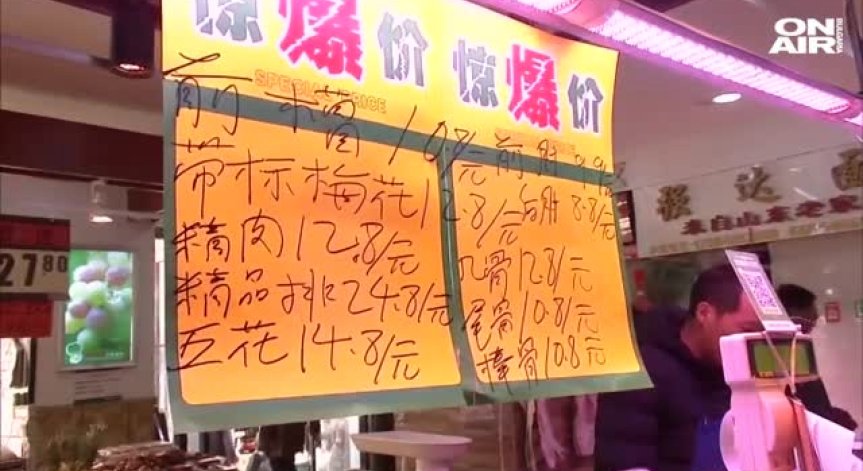 惊爆价
SPECIAL PRICE
前 10.8/元
带标梅花12.8/元
精肉12.8/元
精品排24.8/元
五花14.8/元
惊爆价
前肘9.9/元
后肘8.8/元
几骨12.8/元
尾骨10.8/元
棒骨10.8元
27.80
强达面
来自山东老家
ON AIR
BULGARIA